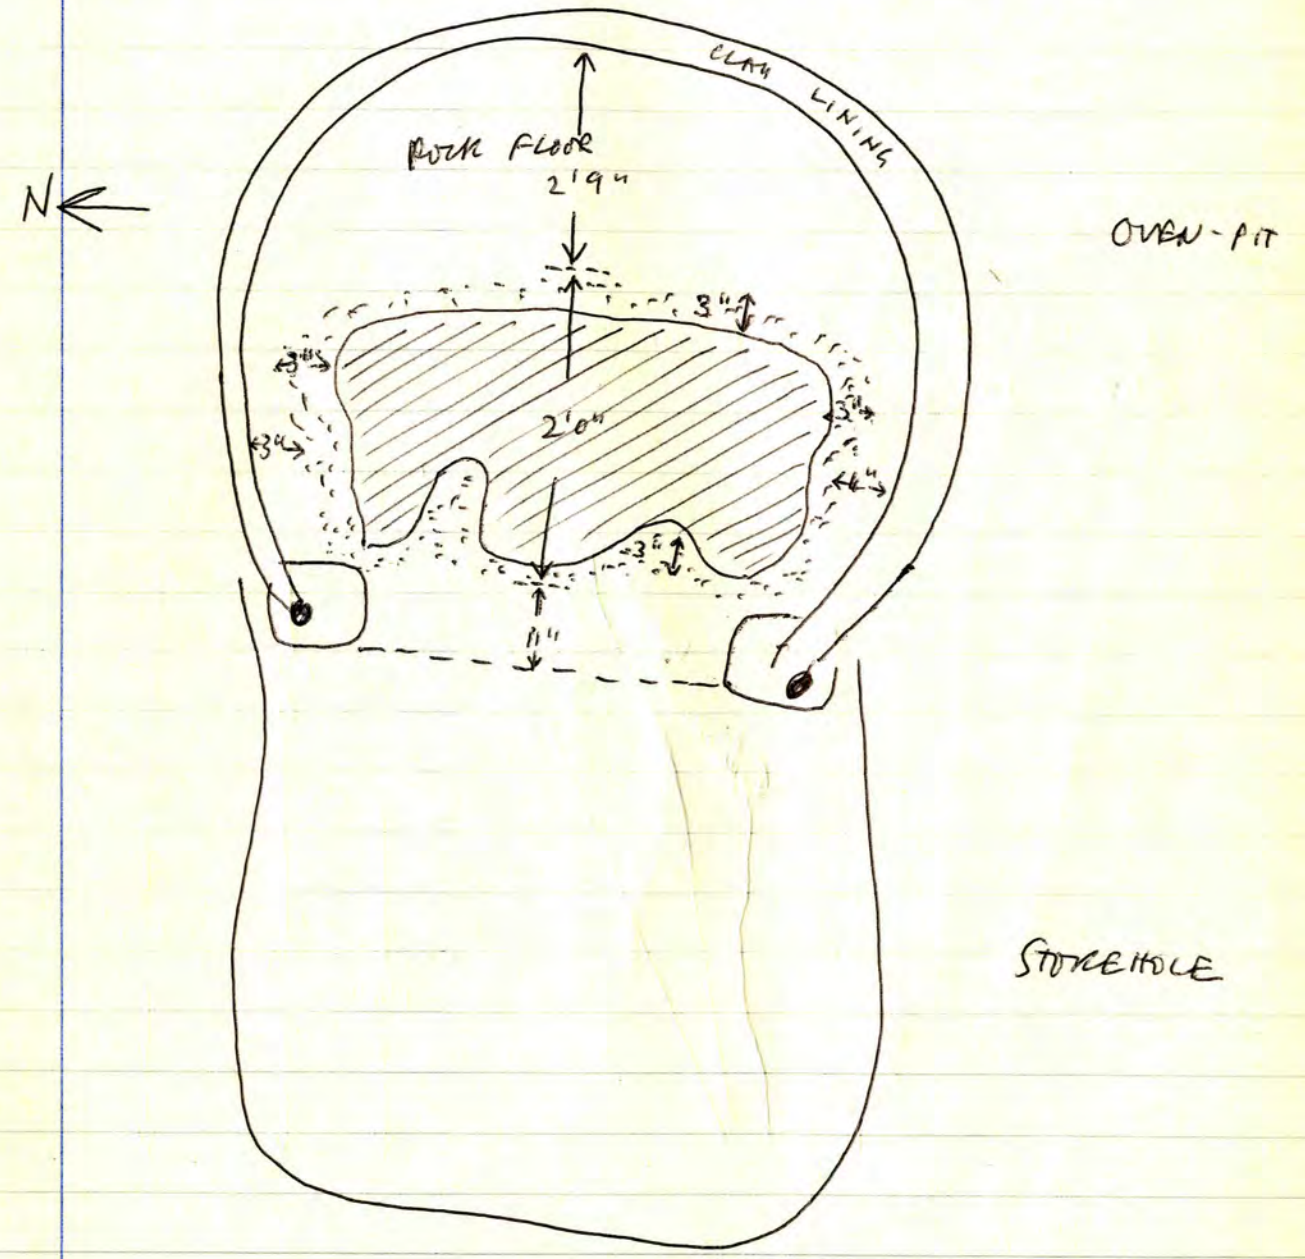 CLAY LINING
ROCK FLOOR
2'9"
N
OVEN-PIT
3"
3"
3"
2'0"
3"
4"
3"
11"
STOKEHOLE